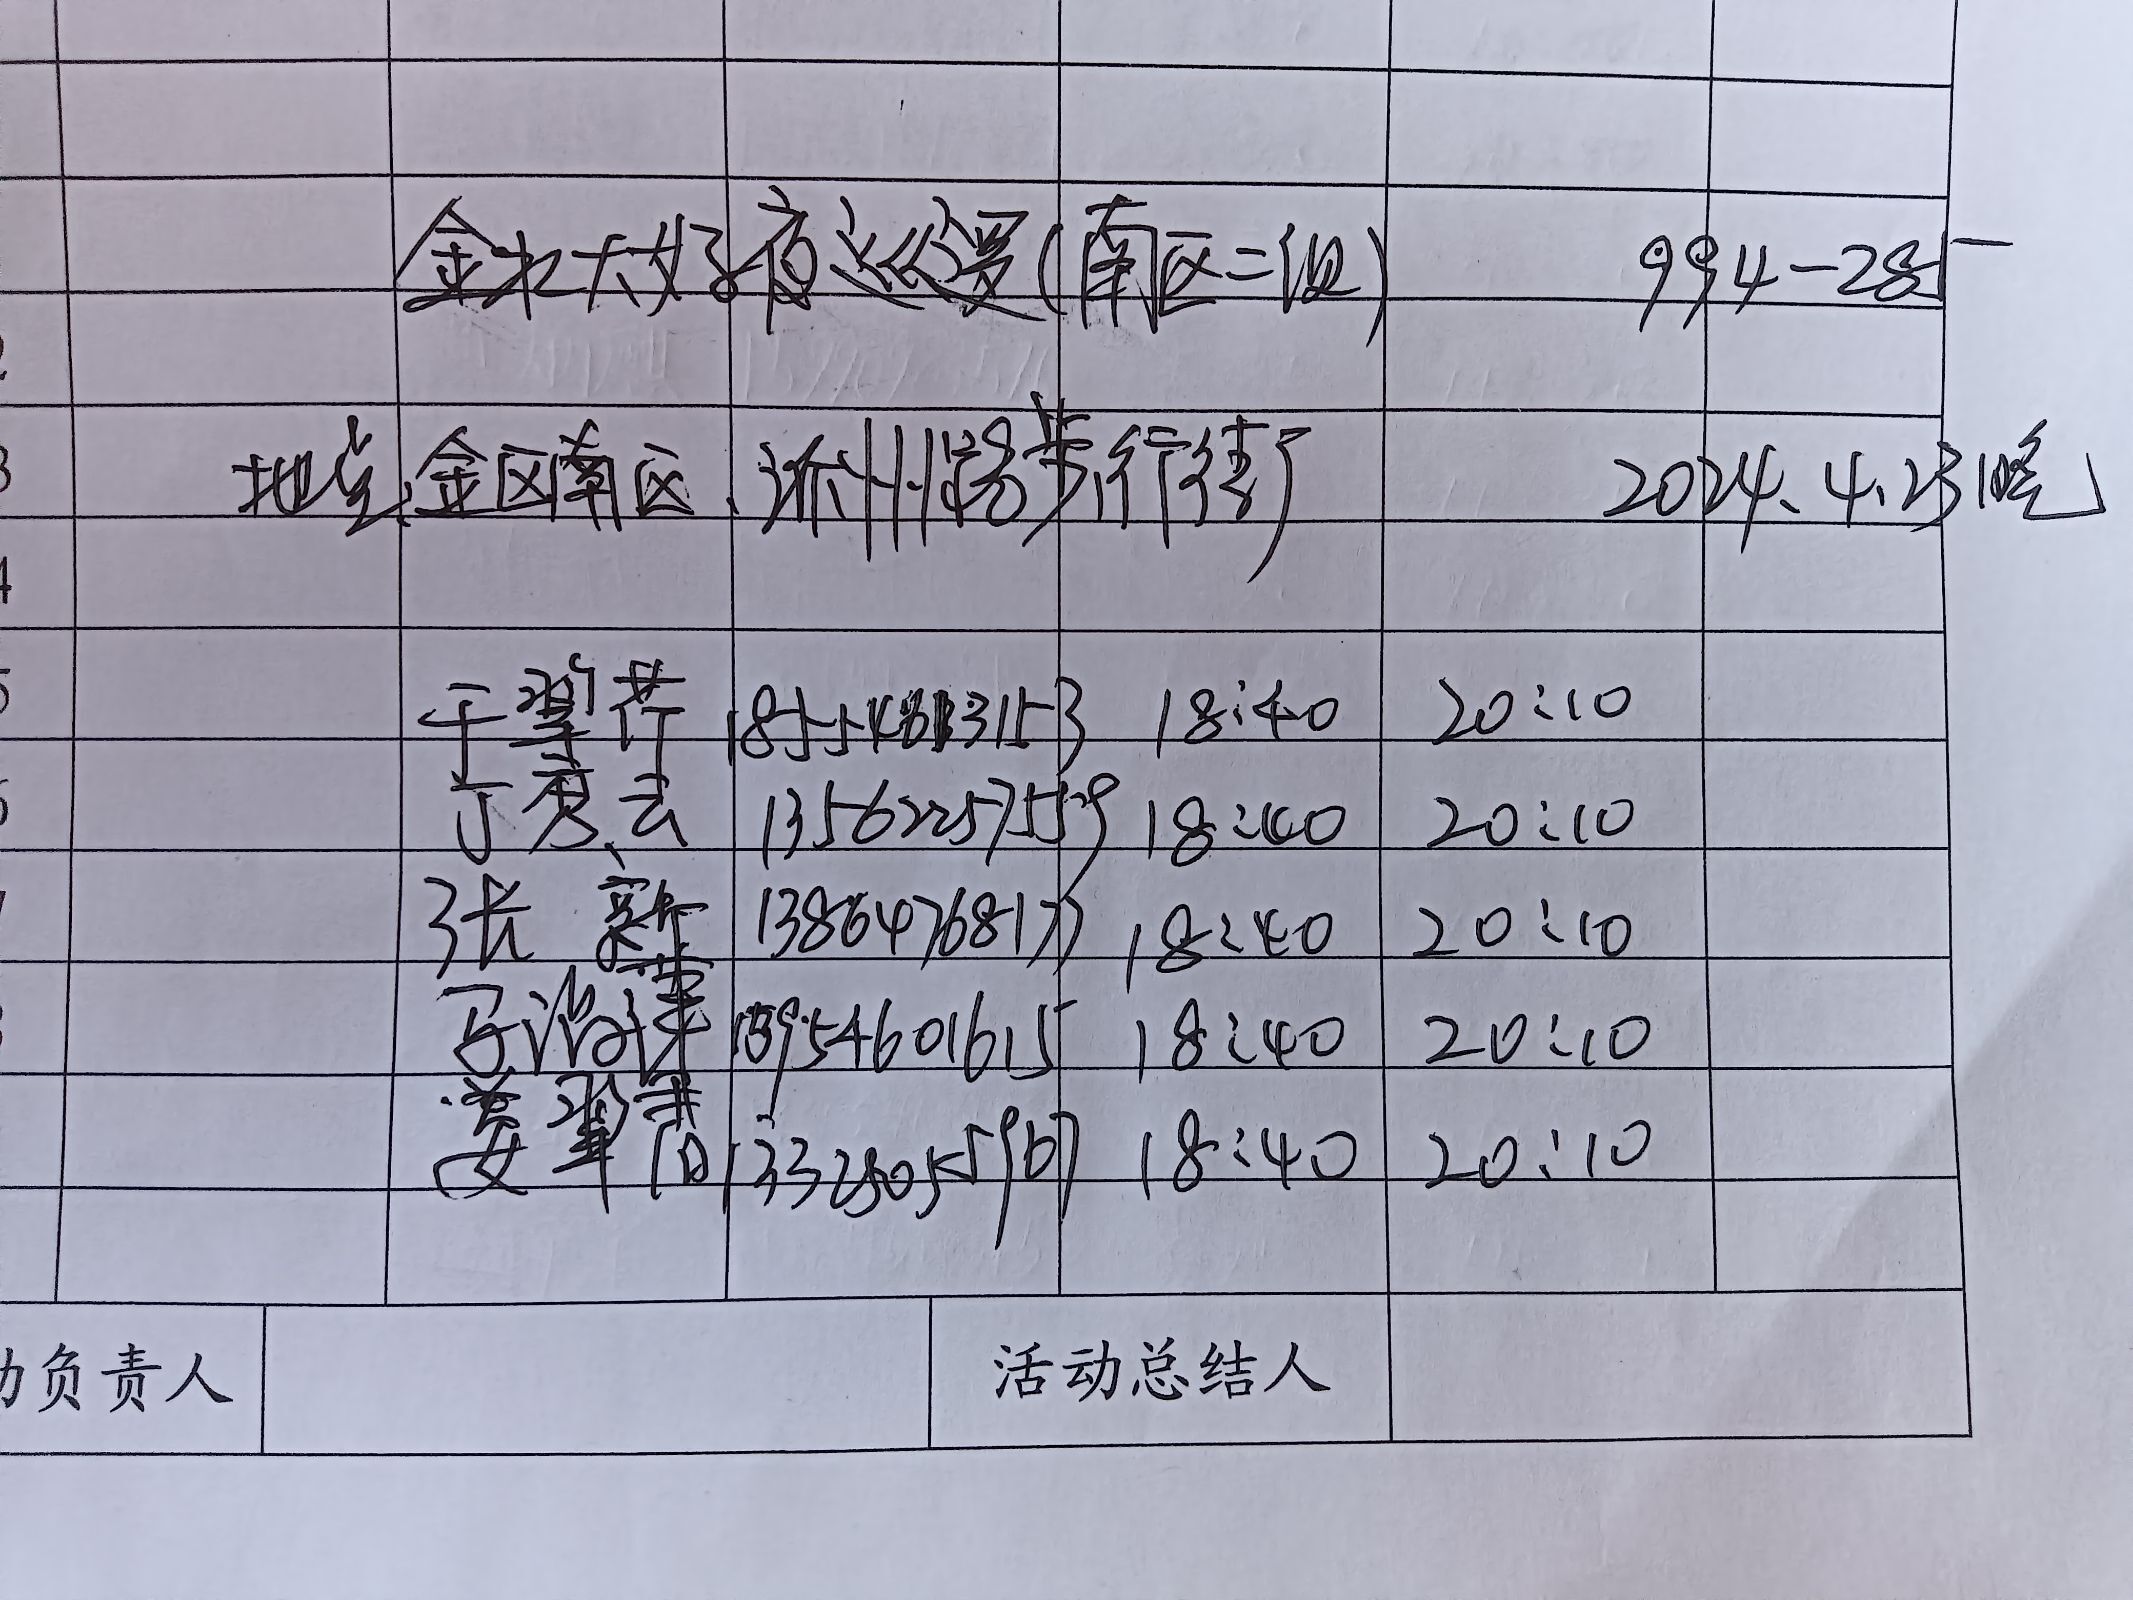 金水大好夜巡逻(南区二组) 994-285
2
地点、金区南区、沂州路步行街 2024.4.23晚
4
5 于翠芹 18554813153 18:40 20:10
6 丁秀云 13562257559 18:40 20:10
张新 13864768177 18:40 20:10
18954601615 18:40 20:10
姜翠青 13325055967 18:40 20:10
动负责人 活动总结人